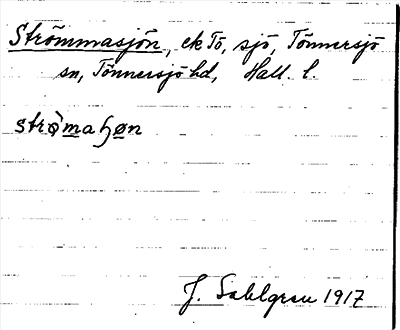 Strömmasjön, ek Tö, sjö, Tönnersjö
sn, Tönnersjö hd, Hall. l.
strò̱maɧøn
J. Sahlgren 1917